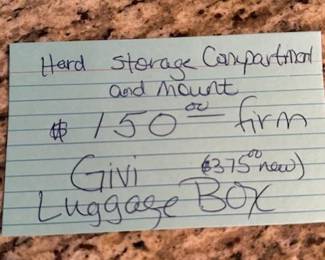 Hard Storage Compartment
and mount
$ 150 00 firm
Givi ($375 00 new)
Luggage Box